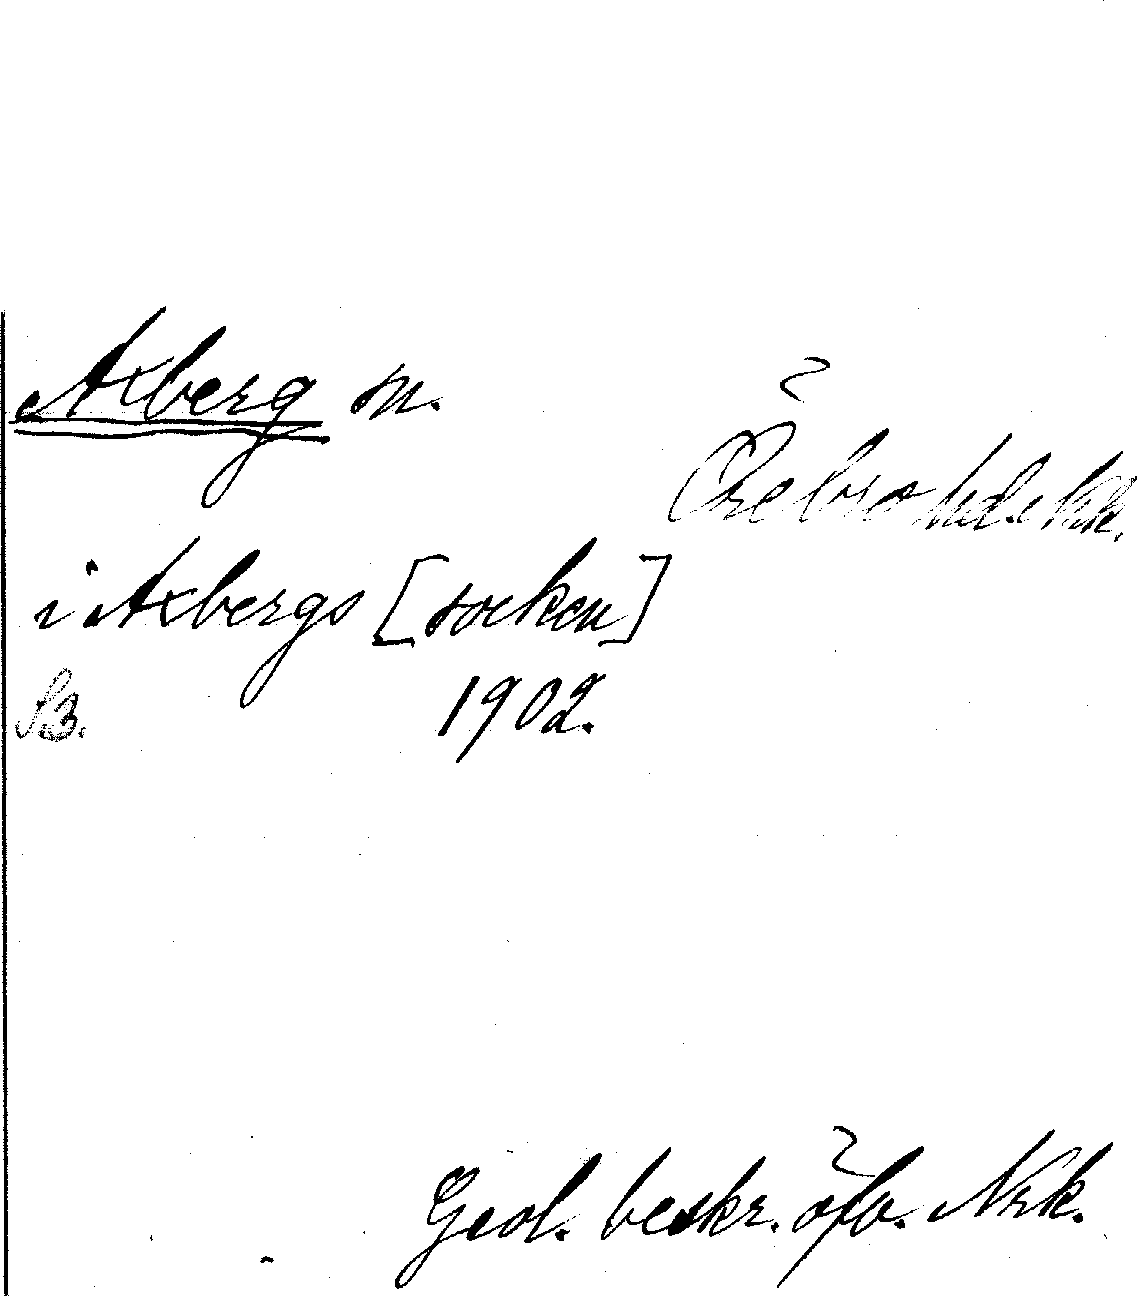 Axberg sn.
Örebro hd. Nrk.
i Axbergs [socken]
S3.
1902.
Geol. beskr. öfv. Nrk.